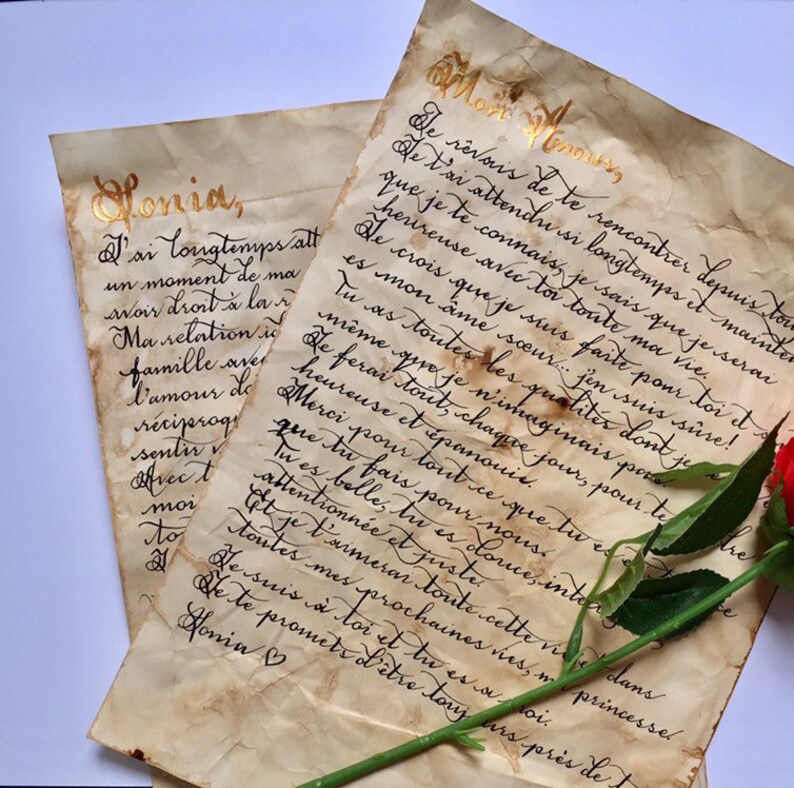 Sonia,
J'ai longtemps att
un moment de ma
avoir droit à la
Ma relation
famille avec
l'amour
réciproq
sentir
Avec
moi
Mon Amour,
Je rêvais de te rencontrer depuis tou
Je t'ai attendu si longtemps et mainten
que je te connais, je sais que je serai
heureuse avec toi toute ma vie.
Je crois que je suis faite pour toi et
es mon âme sœur.. j'en suis sûre!
Tu as toutes les qualités dont je
même que je n'imaginais pas
Je ferai tout, chaque jour, pour te
heureuse et épanouie.
Merci pour tout ce que tu es et
que tu fais pour nous.
Tu es belle, tu es douce,
attentionnée et juste.
Et je t'aimerai toute cette vie, dans
toutes mes prochaines vies, ma princesse.
Je suis à toi et tu es à moi.
Je te promets d'être toujours près de
Sonia ♡